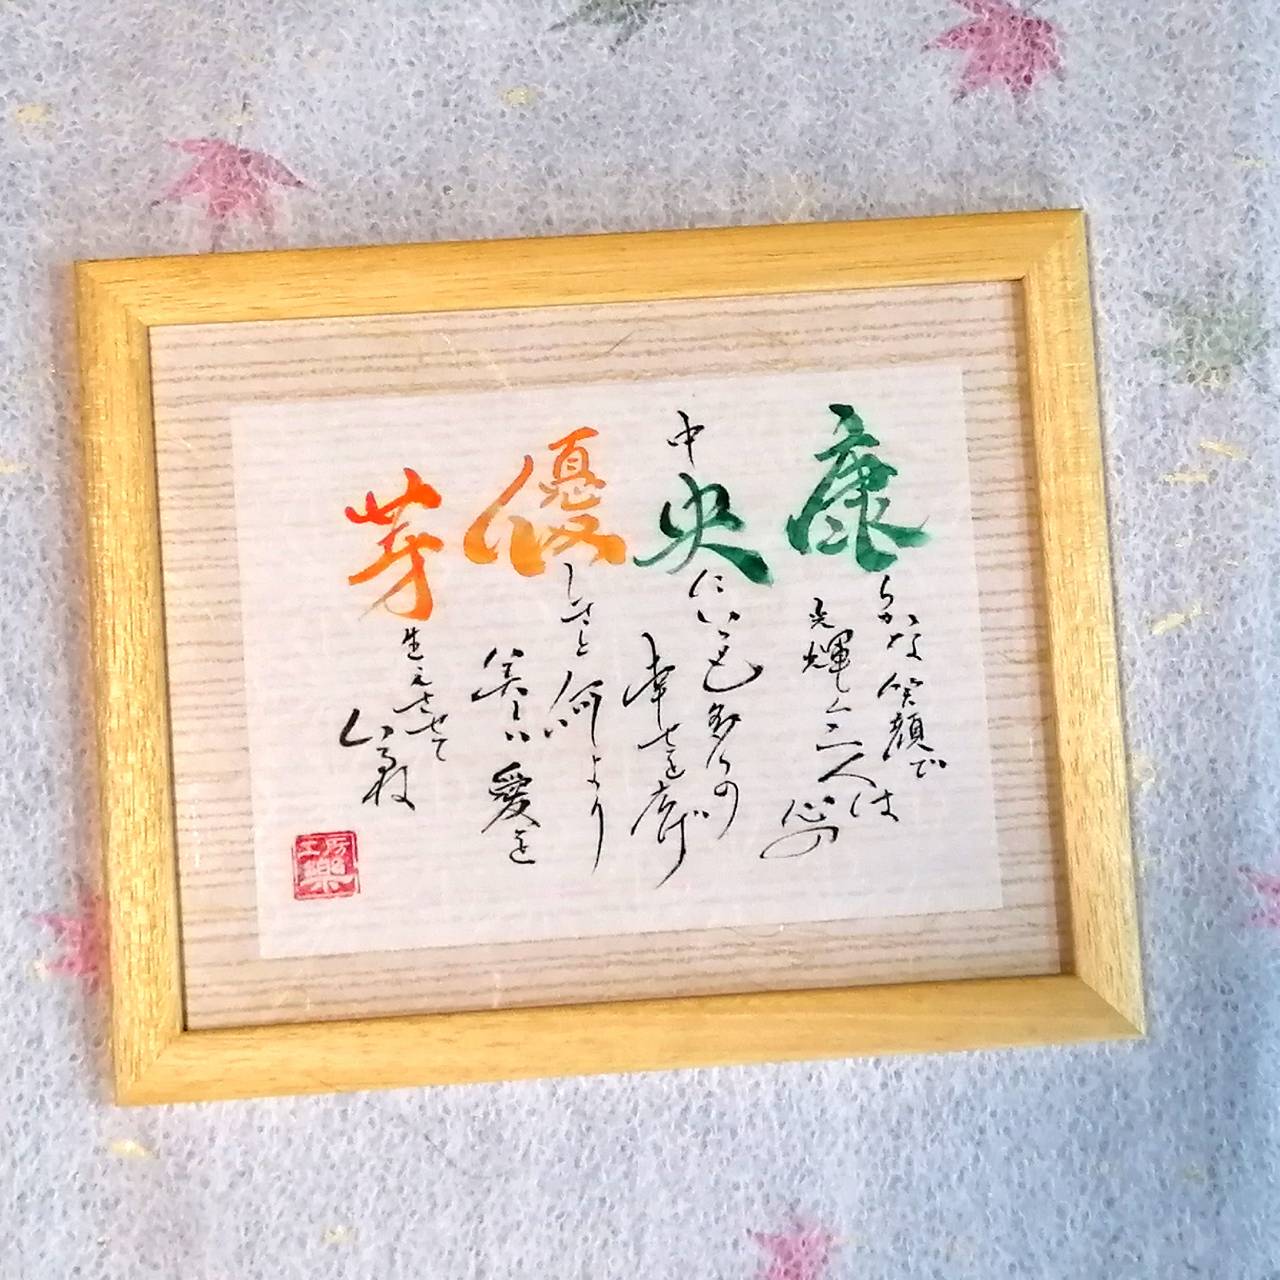 康らかな笑顔で
光輝く二人は
心の
中央にいつも多くの
幸せを広げ
優しさと何より
美しい愛を
芽生えさせて
いるね
工房
樂